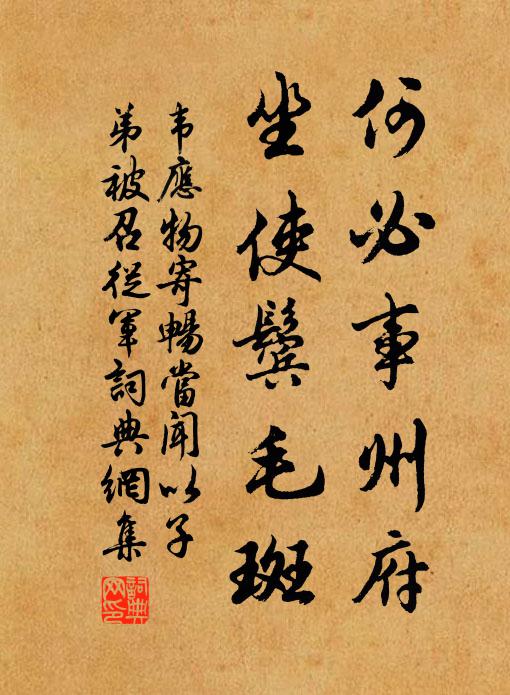 何必事州府
坐使鬓毛斑
韦應物寄暢當聞以子
弟被召從軍詞典網集
詞典網印